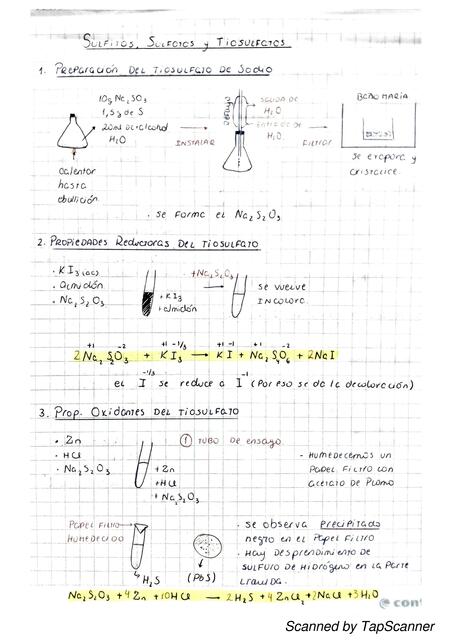 SULFITOS, SULFATOS y TIOSULFATOS
1. PREPARACIÓN DEL TIOSULFATO DE SODIO
10g Na2SO3
1,5g de S
20ml de alcohol
H2O
calentar
hasta
ebullición.
INSTALAR
REFLUJO
SALIDA DE
H2O
ENTRADA DE
H2O.
FILTRAR
BAÑO MARÍA
se evapora y
cristalice.
. se forma el Na2S2O3
2. PROPIEDADES Reductoras DEL TIOSULFATO
. KI3(ac)
. almidón
. Na2S2O3
+ KI3
+ almidón
+Na2S2O3
se vuelve
INCOLORO.
+1 -2 +1 -1/3 +1 -1 +1 -2
2Na2S2O3 + KI3 → KI + Na2S4O6 + 2NaI
-1/3 -1
el I se reduce a I (Por eso se da la decoloración)
3. Prop. Oxidantes DEL TIOSULFATO
. Zn
. HCl
. Na2S2O3
+ Zn
+HCl
+ Na2S2O3
① TUBO de ensayo
- HUMEDECEMOS UN
PAPEL FILTRO con
acetato de Plomo
PAPEL FILTRO
HUMEDECIDO
H2S
(PbS)
. se observa precipitado
negro en el Papel FILTRO
. Hay desprendimiento de
SULFURO de HIDRÓGENO en la PARTE
Na2S2O3 + 4Zn + 10HCl → 2H2S + 4ZnCl2 + 2NaCl + 3H2O
Scanned by TapScanner